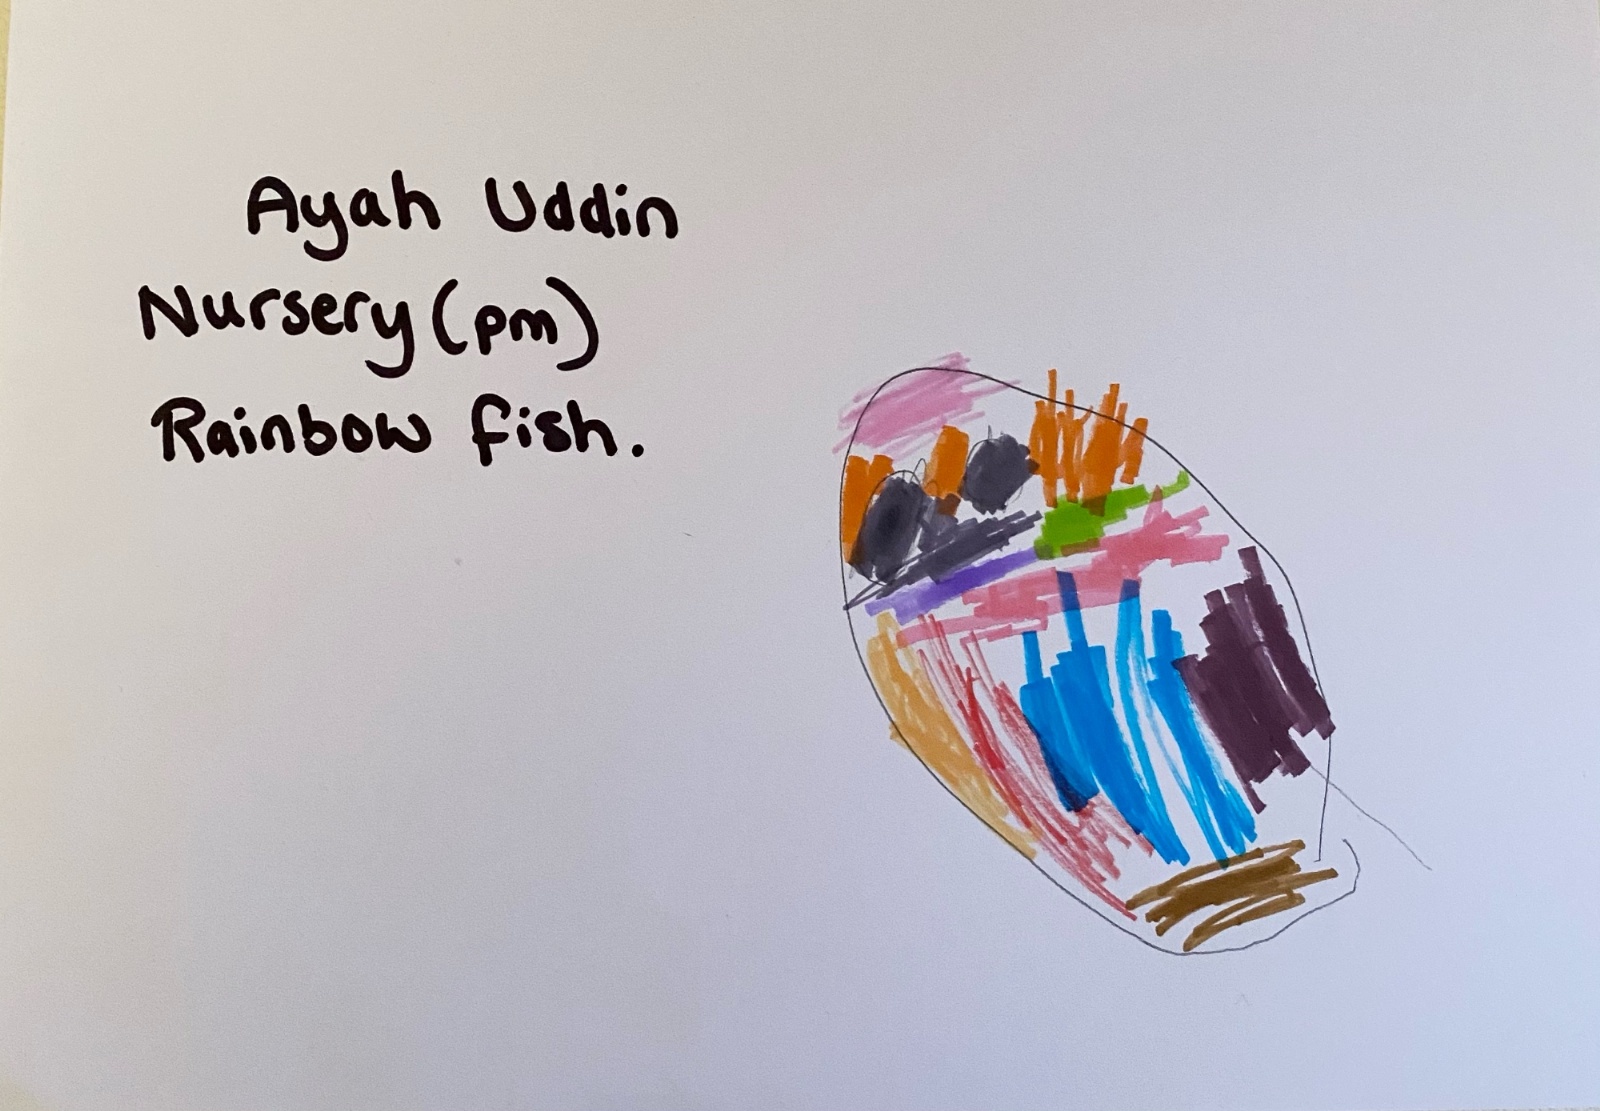 Ayah Uddin
Nursery (pm)
Rainbow fish.